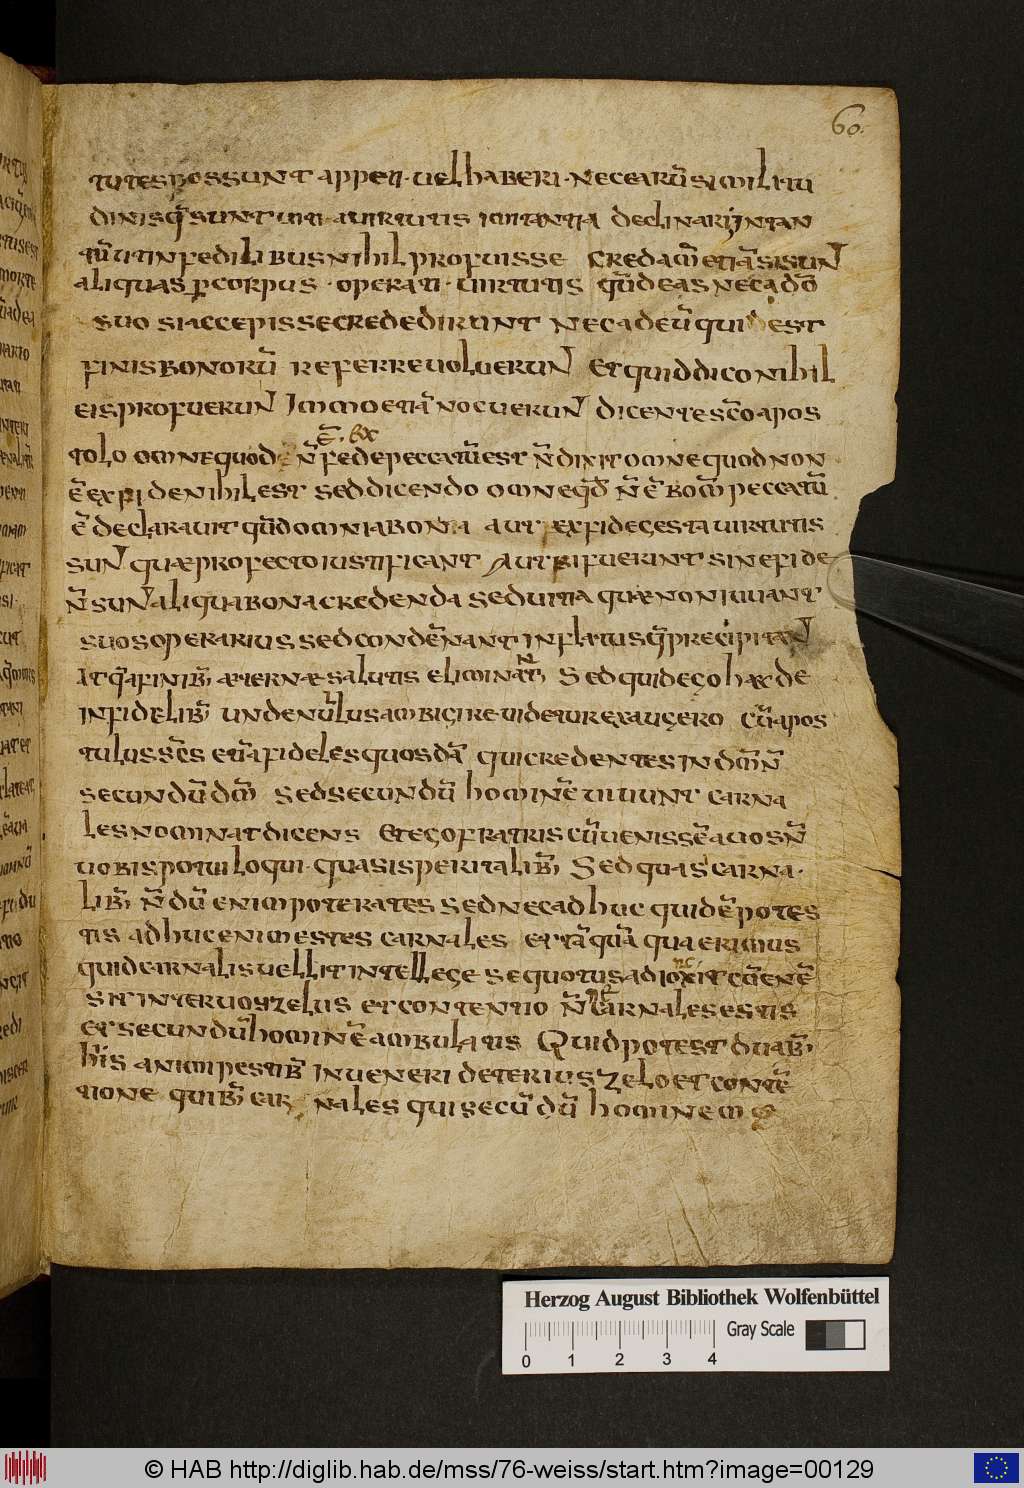 60.
tutes possunt appell. uel haberi. nec earū similitu
dinis q̄ sunt in a uirtutis imitantia declinari, in tan
tū ut infedilibus nihil profuisse credam̄ etiā si sunt
aliquas ꝑ corpus. operati. uirtutis qd̄ eas nec a dō
suo si accepisse crededirunt nec ad eū qui est
finis bonorū referre uoluerunt Et quid dico nihil
eis profuerunt Immo etiā nocuerunt dicente sc̄o apos
tolo omne quod n̄ ē. ex fede peccatū est n̄ dixit omne quod non
ē ex fide nihil est sed dicendo omne qd̄ n̄ ē bom̄ peccatū
ē declarauit qd̄ omnia bona aut ex fide gesta uirtutis
sunt quae profecto iustificant Aut si fuerint sine fide
n̄ sunt aliqua bona credenda sed uitia quae non iuuant
suos operarius sed condēnant inflatus q̄ precipitant
At q̄ a finib; aeternae salutis eliminant; Sed quid ego haec de
infidelib; unde nullus ambigire uidetur exaugero cū apos
tulus sc̄s etiā fideles quosdā qui credentes in dm̄ n̄
secundū dm̄ sed secundū hominē uiuunt carna
les nominat dicens Et ego fratris cū uenissē ad uos n̄
uobis potui loqui. quasi speritalib; Sed quasi carna.
lib; n̄ dū enim poterates sed nec adhuc quidē potes
tis adhuc enim estes carnales et tā quā qua erimus
quid carnalis uellit intellege sequotus adiuncxit cū enē
sit inter uos zelus et contentio n̄ne carnales estis
et secundū hominē ambulatis Quid potest duab;
his animpestib; inueneri deterius zelo et contē
tione quib; carnales qui secūdū hominem
Herzog August Bibliothek Wolfenbüttel
Gray Scale
0 1 2 3 4
© HAB http://diglib.hab.de/mss/76-weiss/start.htm?image=00129